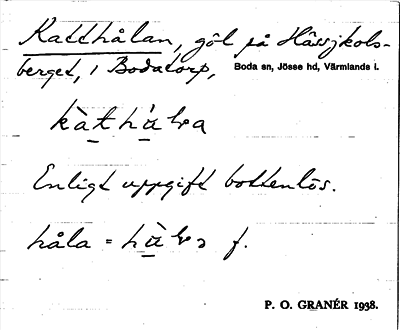 Katthålan, göl på Hässjkols-
berget, i Bodatorp, Boda sn, Jösse hd, Värmlands l.
Enligt uppgift bottenlös.
håla = f.
P. O. GRANÉR 1938.